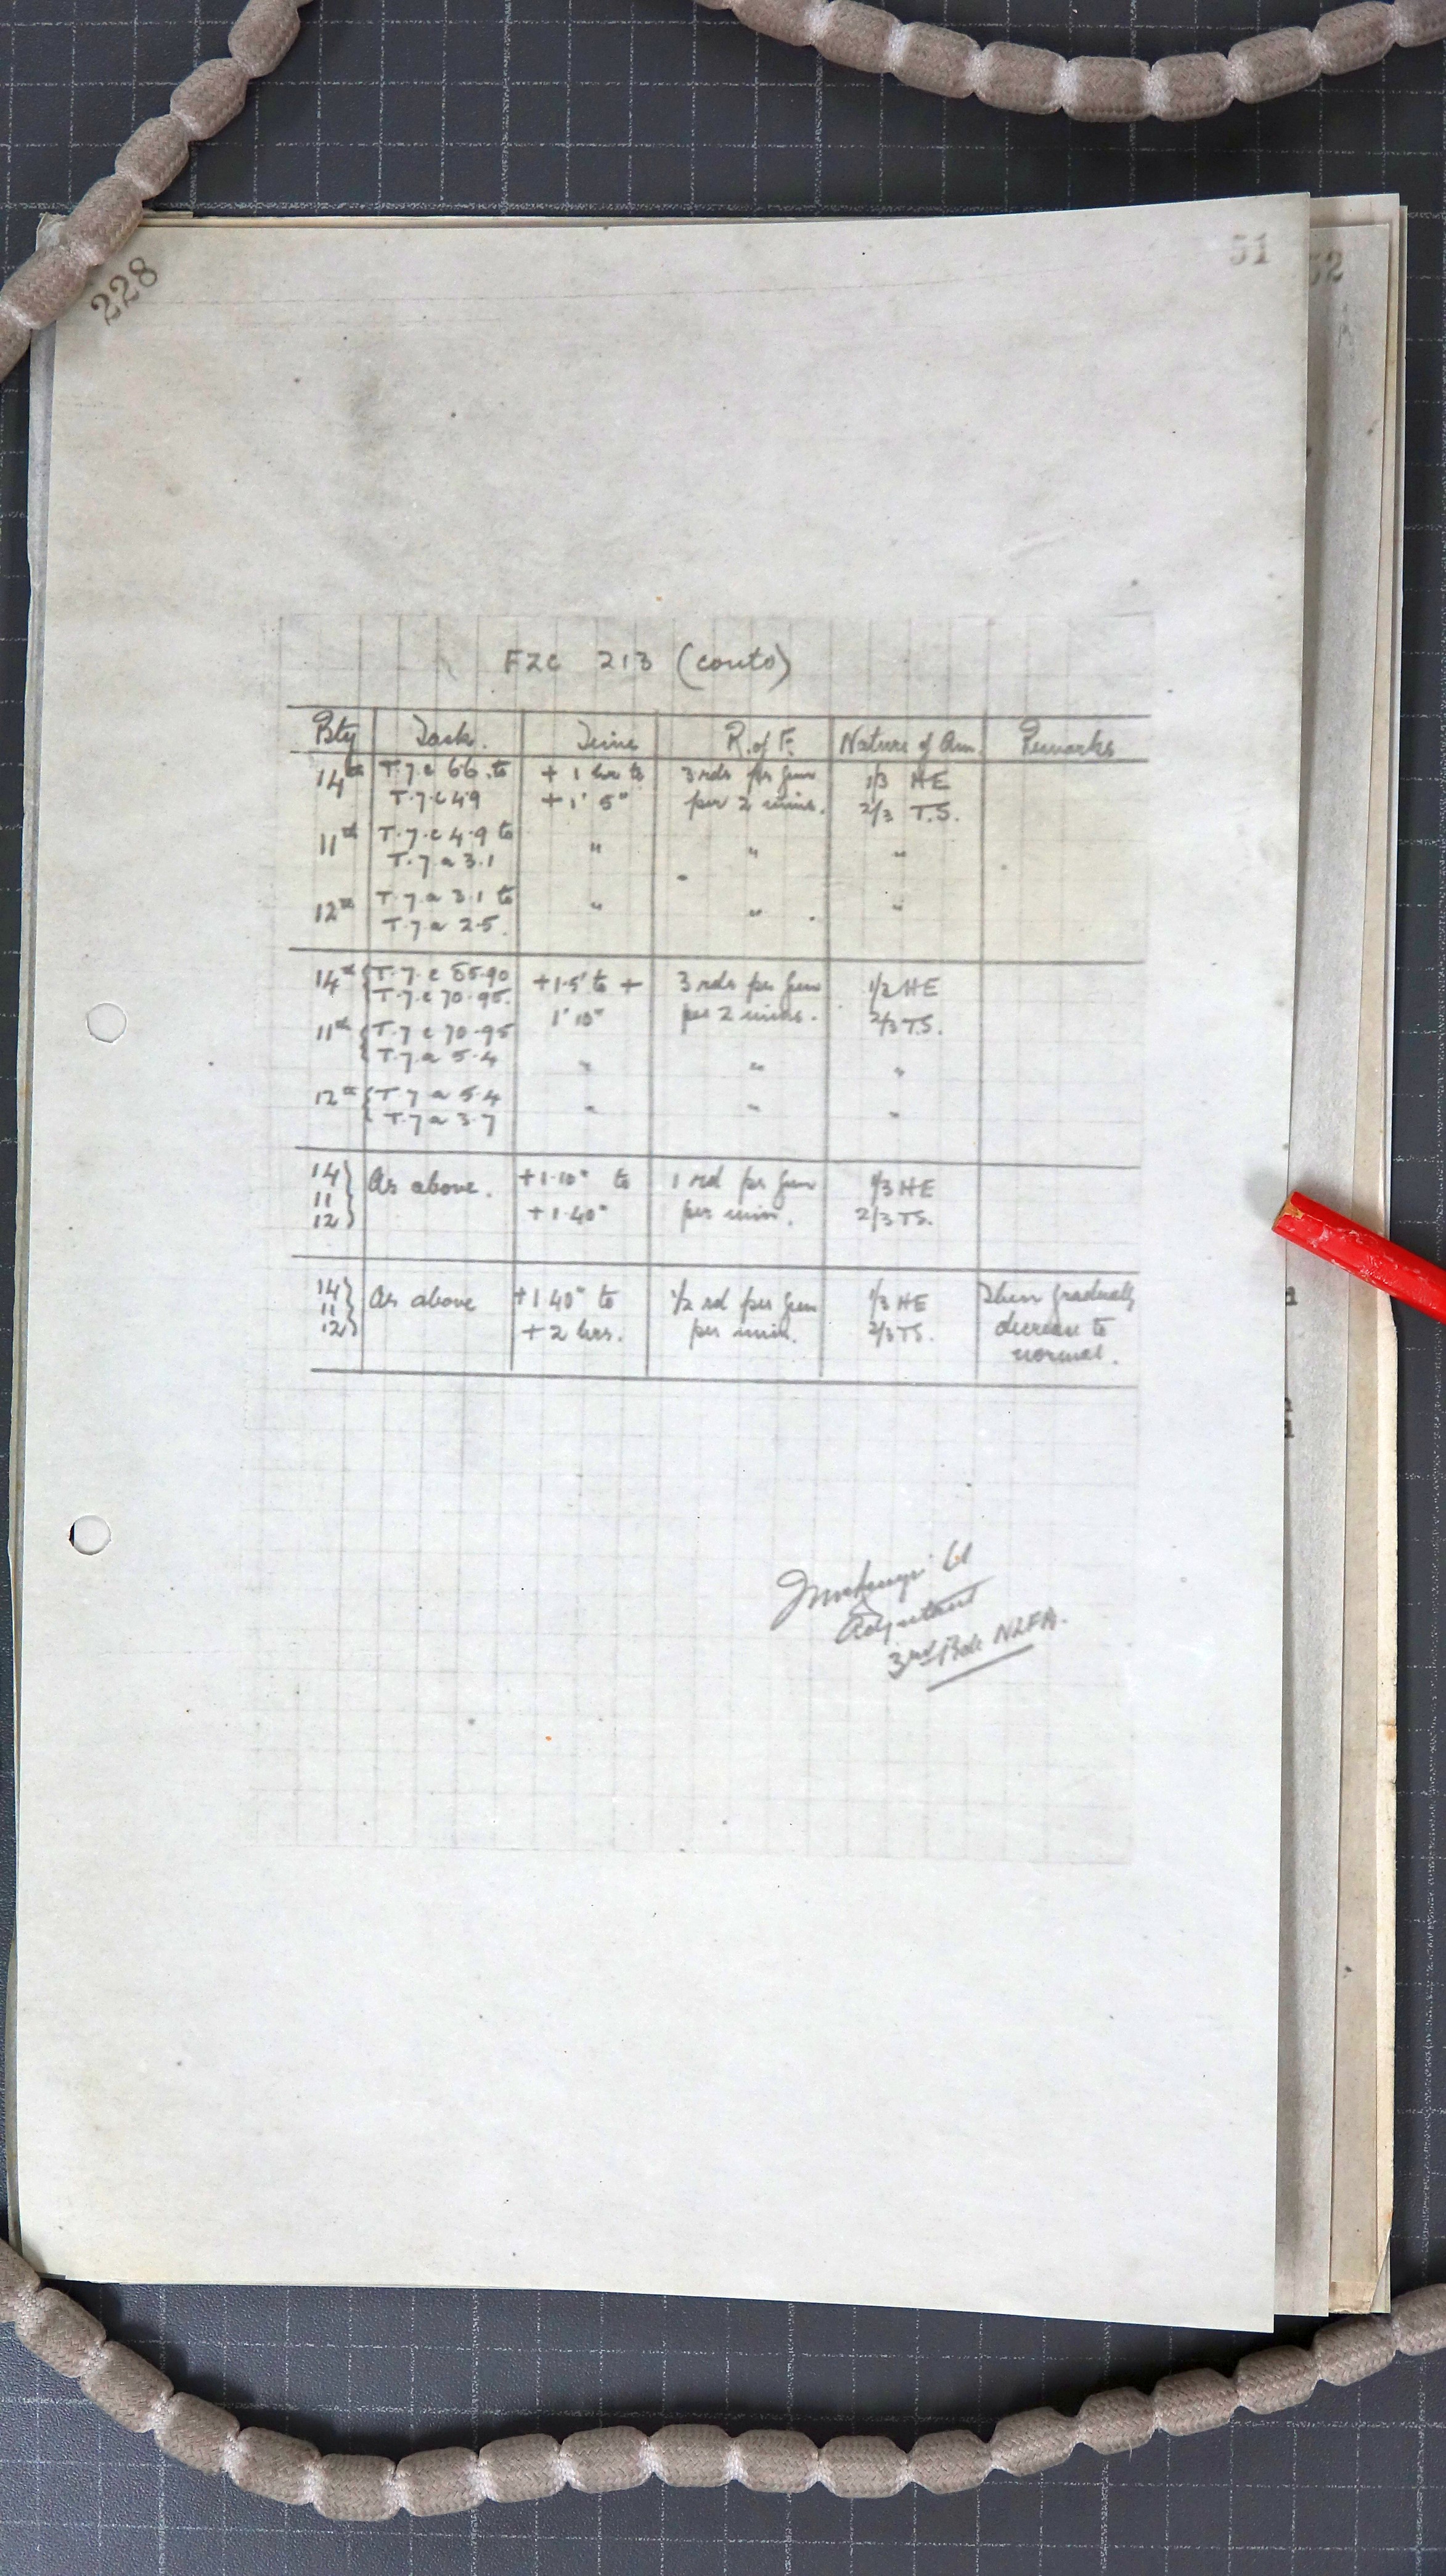 228
51
52
FZC 213 (contd)
Bty Task. Time R. of F. Nature of Am. Remarks
14th T.7.c 66. to + 1 hr to 3 rds per gun 1/3 HE
T.7.c 49 + 1' 5" per 2 mins. 2/3 T.S.
11th T.7.c 4.9 to " " "
T.7.a 3.1
12th T.7.a 3.1 to " " "
T.7.a 2.5.
14th {T.7.c 65.90 +1.5' to + 3 rds per gun 1/2 HE
T.7.c 70.95. 1' 10" per 2 mins. 2/3 T.S.
11th {T.7.c 70.95
T.7.a 5.4 " " "
12th {T.7 a 5.4
T.7 a 3.7 " " "
14} As above. +1.10" to 1 rd per gun 1/3 HE
11} +1.40" per min. 2/3 TS.
12}
14} As above +1 40" to 1/2 rd per gun 1/3 HE Then gradually
11} +2 hrs. per min. 2/3 TS. decrease to
12} normal.
Lt
Adjutant
3rd Bde NZFA.